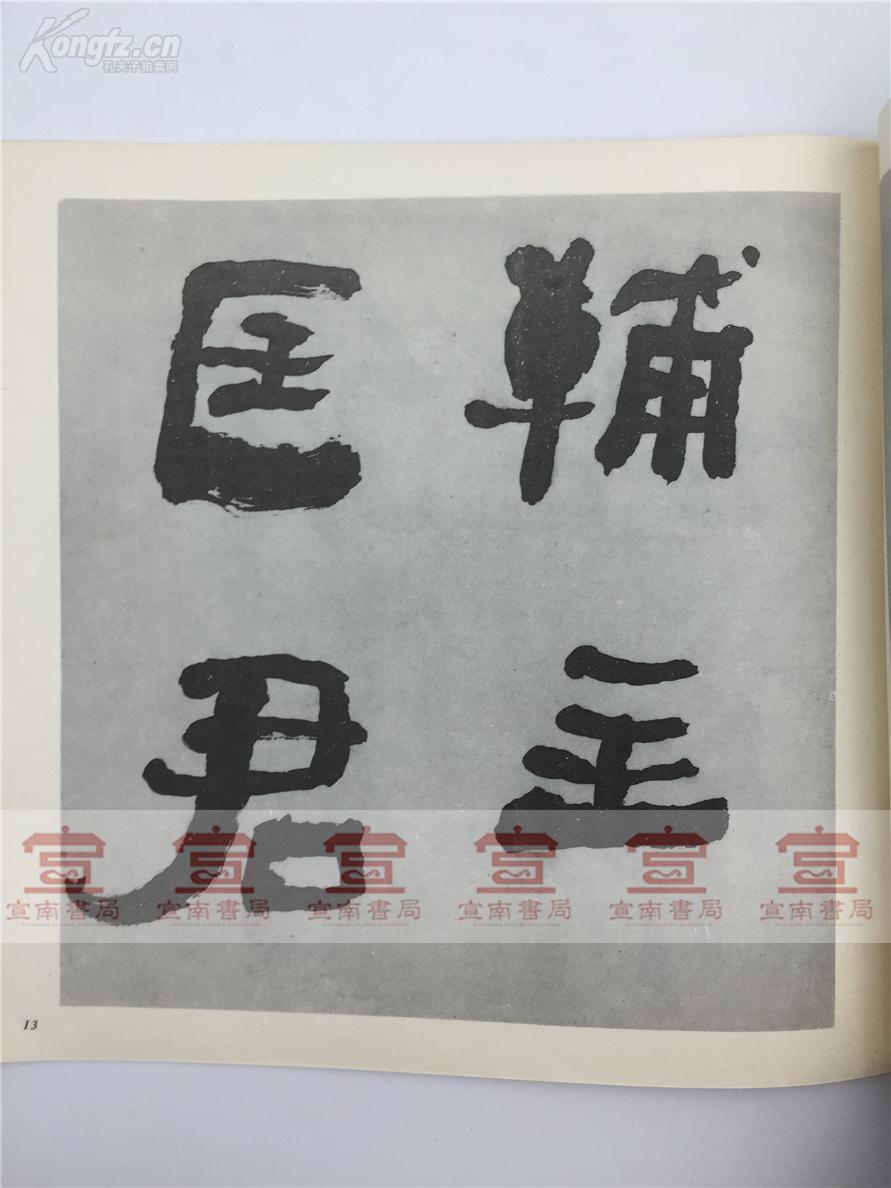 Kongfz.cn
孔夫子拍卖网
輔主
匡君
宣南書局 宣南書局 宣南書局 宣南書局 宣南書局 宣南書局
13